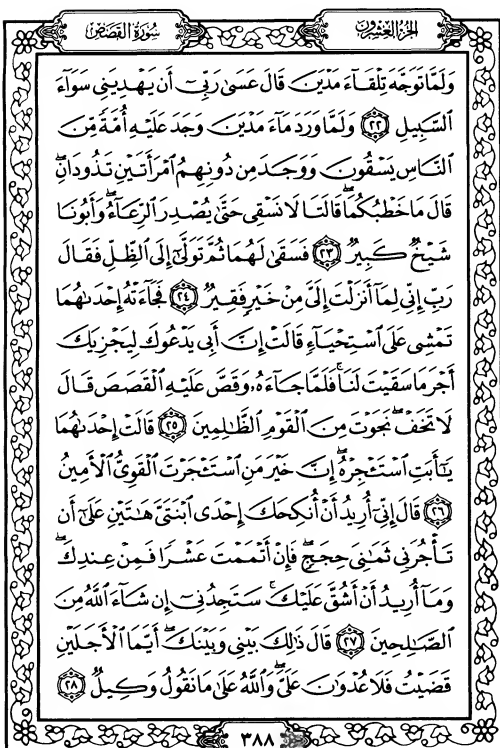 الجزء العشرون
سورة القصص
وَلَمَّا تَوَجَّهَ تِلْقَاءَ مَدْيَنَ قَالَ عَسَىٰ رَبِّيٓ أَن يَهْدِيَنِي سَوَآءَ
ٱلسَّبِيلِ ٢٢ وَلَمَّا وَرَدَ مَآءَ مَدْيَنَ وَجَدَ عَلَيْهِ أُمَّةً مِّنَ
ٱلنَّاسِ يَسْقُونَ وَوَجَدَ مِن دُونِهِمُ ٱمْرَأَتَيْنِ تَذُودَانِۖ
قَالَ مَا خَطْبُكُمَاۖ قَالَتَا لَا نَسْقِي حَتَّىٰ يُصْدِرَ ٱلرِّعَآءُۖ وَأَبُونَا
شَيْخٌ كَبِيرٌ ٢٣ فَسَقَىٰ لَهُمَا ثُمَّ تَوَلَّىٰٓ إِلَى ٱلظِّلِّ فَقَالَ
رَبِّ إِنِّي لِمَآ أَنزَلْتَ إِلَيَّ مِنْ خَيْرٍ فَقِيرٌ ٢٤ فَجَآءَتْهُ إِحْدَىٰهُمَا
تَمْشِي عَلَى ٱسْتِحْيَآءٍ قَالَتْ إِنَّ أَبِي يَدْعُوكَ لِيَجْزِيَكَ
أَجْرَ مَا سَقَيْتَ لَنَاۚ فَلَمَّا جَآءَهُۥ وَقَصَّ عَلَيْهِ ٱلْقَصَصَ قَالَ
لَا تَخَفْۖ نَجَوْتَ مِنَ ٱلْقَوْمِ ٱلظَّٰلِمِينَ ٢٥ قَالَتْ إِحْدَىٰهُمَا
يَٰٓأَبَتِ ٱسْتَـْٔجِرْهُۖ إِنَّ خَيْرَ مَنِ ٱسْتَـْٔجَرْتَ ٱلْقَوِيُّ ٱلْأَمِينُ
٢٦ قَالَ إِنِّيٓ أُرِيدُ أَنْ أُنكِحَكَ إِحْدَى ٱبْنَتَيَّ هَٰتَيْنِ عَلَىٰٓ أَن
تَأْجُرَنِي ثَمَٰنِيَ حِجَجٍۖ فَإِنْ أَتْمَمْتَ عَشْرًا فَمِنْ عِندِكَۖ
وَمَآ أُرِيدُ أَنْ أَشُقَّ عَلَيْكَۚ سَتَجِدُنِيٓ إِن شَآءَ ٱللَّهُ مِنَ
ٱلصَّٰلِحِينَ ٢٧ قَالَ ذَٰلِكَ بَيْنِي وَبَيْنَكَۖ أَيَّمَا ٱلْأَجَلَيْنِ
قَضَيْتُ فَلَا عُدْوَٰنَ عَلَيَّۖ وَٱللَّهُ عَلَىٰ مَا نَقُولُ وَكِيلٌ ٢٨
٣٨٨